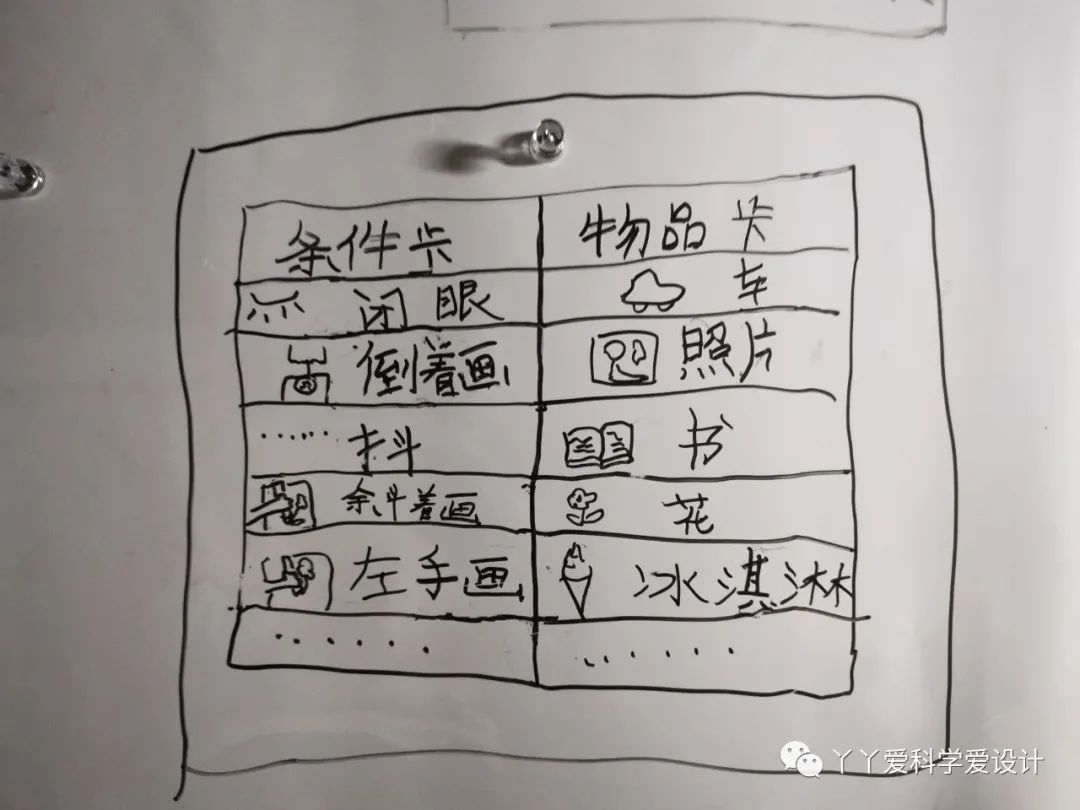 条件卡 物品卡
闭眼 车
倒着画 照片
······抖 书
斜着画 花
左手画 冰淇淋
····· ······
丫丫爱科学爱设计